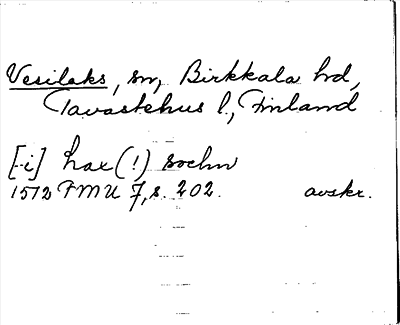 Vesilaks, sn, Birkkala hd,
Tavastehus l., Finland
[i] hax (!) sochn
1512 FMU 7, s. 202. avskr.